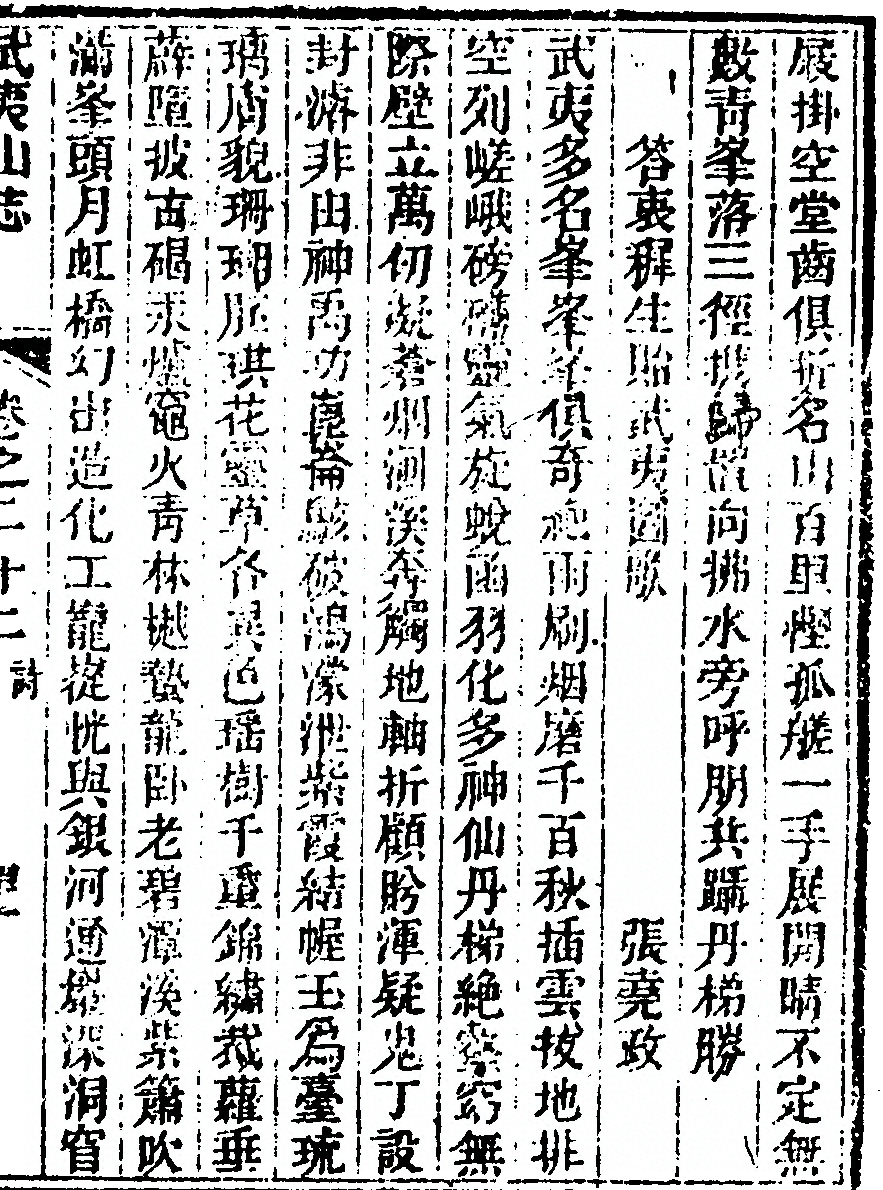 展掛空堂齒俱折名山百里慳孤艖一手展開睛不定無
數青峯落三徑携歸舊向狒水旁呼朋共躡丹梯勝
答衷穉生貽武夷圖歌
張堯政
武夷多名峯峯峯俱奇絶雨刷烟磨千百秋插雲拔地排
空列嵯峨磅礴靈氣旋蛻函羽化多神仙丹梯絶壑窈無
際壁立萬仞凝蒼烟洞溪奔觸地軸折顧盻渾疑鬼丁設
封濬非由神禹功崑崙駭破鴻濛泄紫霞結幄玉爲臺琉
璃膚貌珊瑚胚琪花靈草各異色瑶樹千重錦繡裁蘿垂
薜墮披古碣汞爐竈火青林樾蟄龍卧老碧潭溪紫簫吹
滿峯頭月虹橋幻出造化工巃嵸恍與銀河通巖深洞窅
武夷山志
卷之二十二
詩